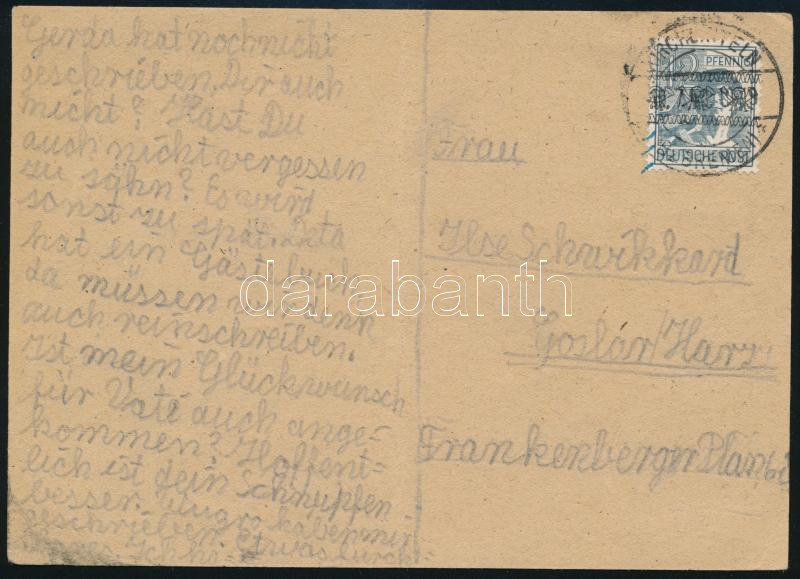 Gerda hat noch nicht
geschrieben. Dir auch
nicht? Hast Du
auch nicht vergessen
zu sähn? Es wird
sonst zu spät.
hat ein Gästebuch,
da müssen wir denn
auch reinschreiben.
Ist mein Glückwunsch
für Vati auch ange-
kommen? Hoffent-
lich ist dein Schnupfen
besser. haben mir
geschrieben. Etwas durch
Ich
PFENNIG
DEUTSCHE POST
Frau
Ilse Schwikkard
Goslar/Harz
Frankenberger Plan
darabanth